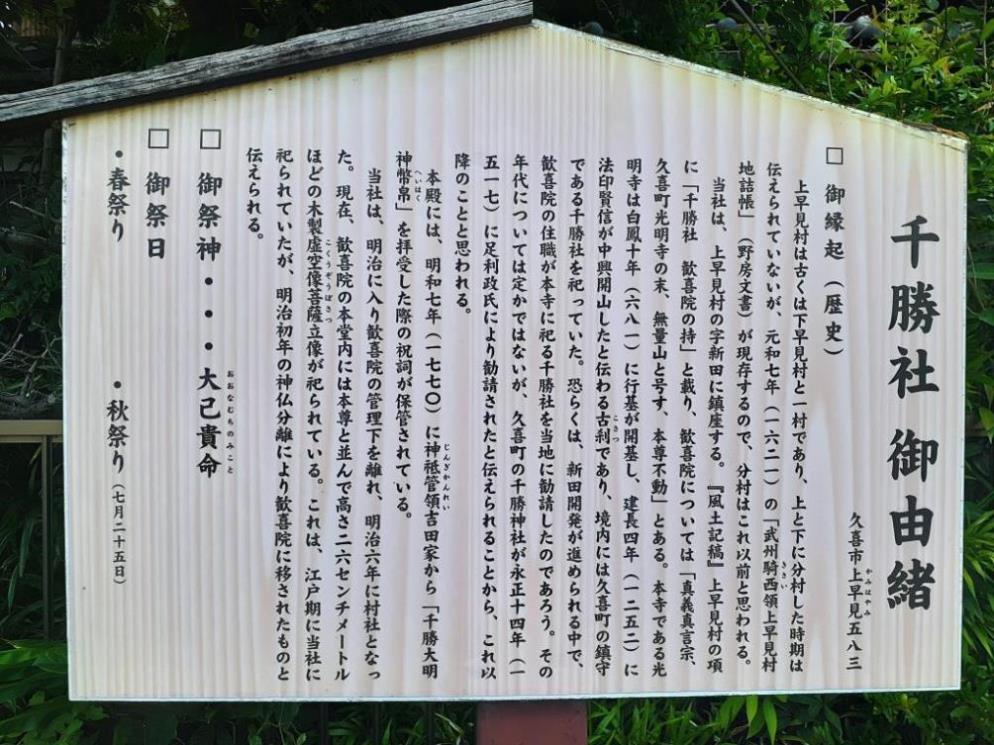 千勝社 御由緒
久喜市上早見五八三
かみはやみ
□ 御縁起（歴史）
上早見村は古くは下早見村と一村であり、上と下に分村した時期は
伝えられていないが、元和七年（一六二一）の「武州騎西領上早見村
きさい
地詰帳」（野房文書）が現存するので、分村はこれ以前と思われる。
当社は、上早見村の字新田に鎮座する。『風土記稿』上早見村の項
に「千勝社 歓喜院の持」と載り、歓喜院については「真義真言宗、
久喜町光明寺の末、無量山と号す、本尊不動」とある。本寺である光
明寺は白鳳十年（六八一）に行基が開基し、建長四年（一二五二）に
法印賢信が中興開山したと伝わる古刹であり、境内には久喜町の鎮守
こさつ
である千勝社を祀っていた。恐らくは、新田開発が進められる中で、
歓喜院の住職が本寺に祀る千勝社を当地に勧請したのであろう。その
年代については定かではないが、久喜町の千勝神社が永正十四年（一
五一七）に足利政氏により勧請されたと伝えられることから、これ以
降のことと思われる。
本殿には、明和七年（一七七〇）に神祇管領吉田家から「千勝大明
じんぎかんれい
神幣帛」を拝受した際の祝詞が保管されている。
へいはく
当社は、明治に入り歓喜院の管理下を離れ、明治六年に村社となっ
た。現在、歓喜院の本堂内には本尊と並んで高さ二六センチメートル
ほどの木製虚空像菩薩立像が祀られている。これは、江戸期に当社に
こくうぞうぼさつ
祀られていたが、明治初年の神仏分離により歓喜院に移されたものと
伝えられる。
□ 御祭神・・・大己貴命
おおなむちのみこと
□ 御祭日
・春祭り ・秋祭り（七月二十五日）